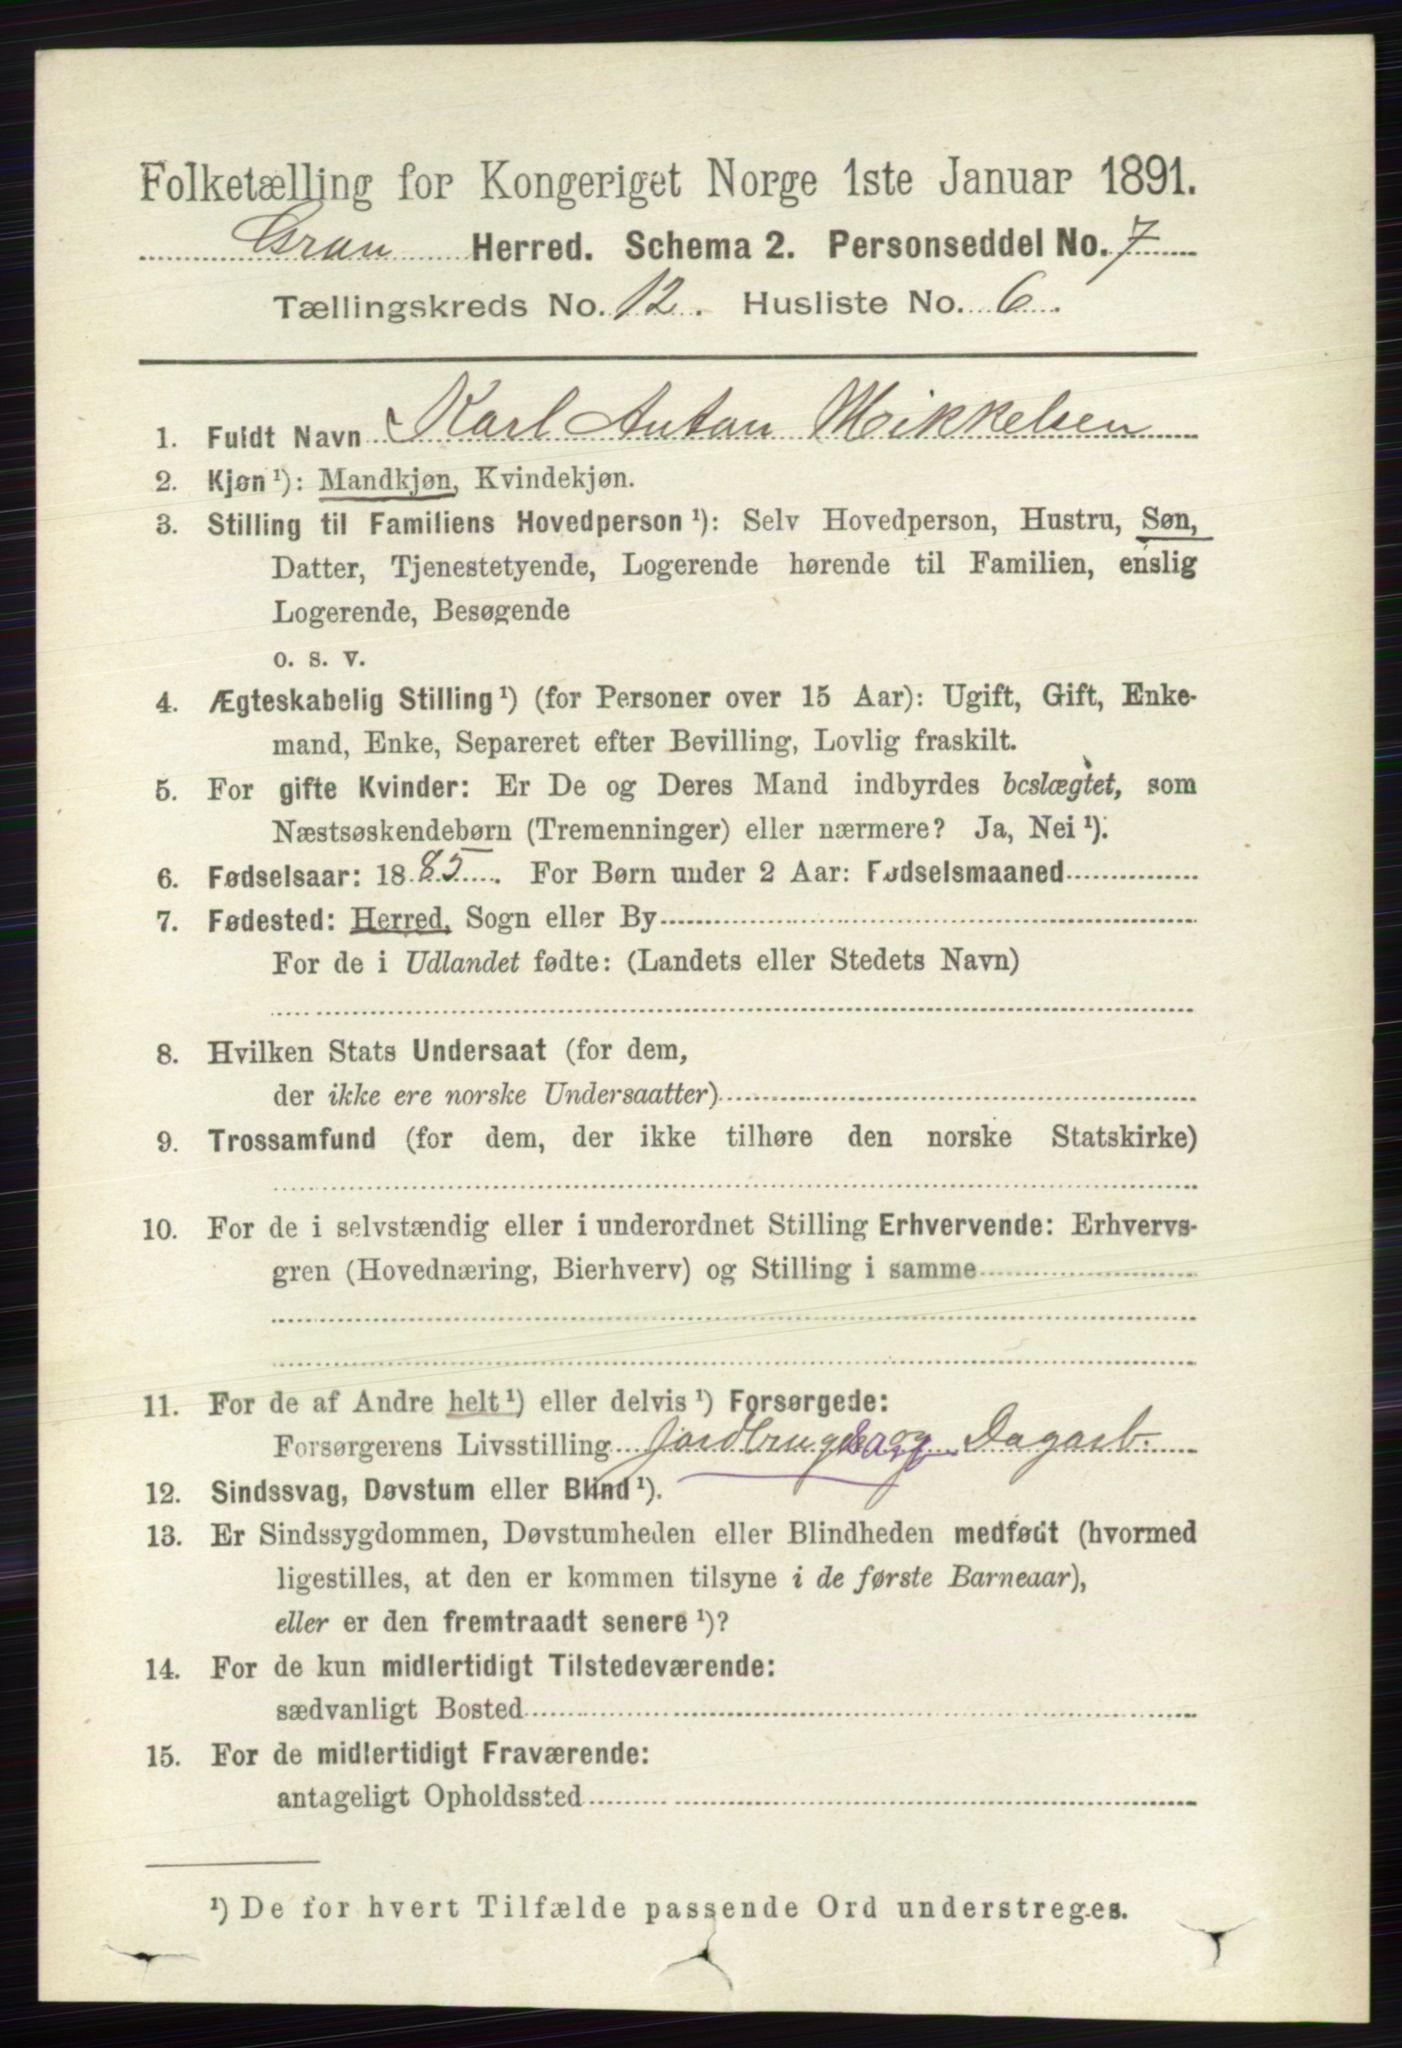 Folketælling for Kongeriget Norge 1ste Januar 1891.
Gran Herred. Schema 2. Personseddel No. 7
Tællingskreds No. 12. Husliste No. 6.
1. Fuldt Navn Karl Anton Mikkelsen
2. Kjøn ¹): Mandkjøn, Kvindekjøn.
3. Stilling til Familiens Hovedperson ¹): Selv Hovedperson, Hustru, Søn,
Datter, Tjenestetyende, Logerende hørende til Familien, enslig
Logerende, Besøgende
o. s. v.
4. Ægteskabelig Stilling ¹) (for Personer over 15 Aar): Ugift, Gift, Enke-
mand, Enke, Separeret efter Bevilling, Lovlig fraskilt.
5. For gifte Kvinder: Er De og Deres Mand indbyrdes beslægtet, som
Næstsøskendebørn (Tremenninger) eller nærmere? Ja, Nei ¹).
6. Fødselsaar: 1885. For Børn under 2 Aar: Fødselsmaaned
7. Fødested: Herred, Sogn eller By
For de i Udlandet fødte: (Landets eller Stedets Navn)
8. Hvilken Stats Undersaat (for dem,
der ikke ere norske Undersaatter)
9. Trossamfund (for dem, der ikke tilhøre den norske Statskirke)
10. For de i selvstændig eller i underordnet Stilling Erhvervende: Erhvervs-
gren (Hovednæring, Bierhverv) og Stilling i samme
11. For de af Andre helt ¹) eller delvis ¹) Forsørgede:
Forsørgerens Livsstilling Jordbruger og Dagarb.
12. Sindssvag, Døvstum eller Blind ¹).
13. Er Sindssygdommen, Døvstumheden eller Blindheden medfødt (hvormed
ligestilles, at den er kommen tilsyne i de første Barneaar),
eller er den fremtraadt senere ¹)?
14. For de kun midlertidigt Tilstedeværende:
sædvanligt Bosted
15. For de midlertidigt Fraværende:
antageligt Opholdssted
¹) De for hvert Tilfælde passende Ord understreges.